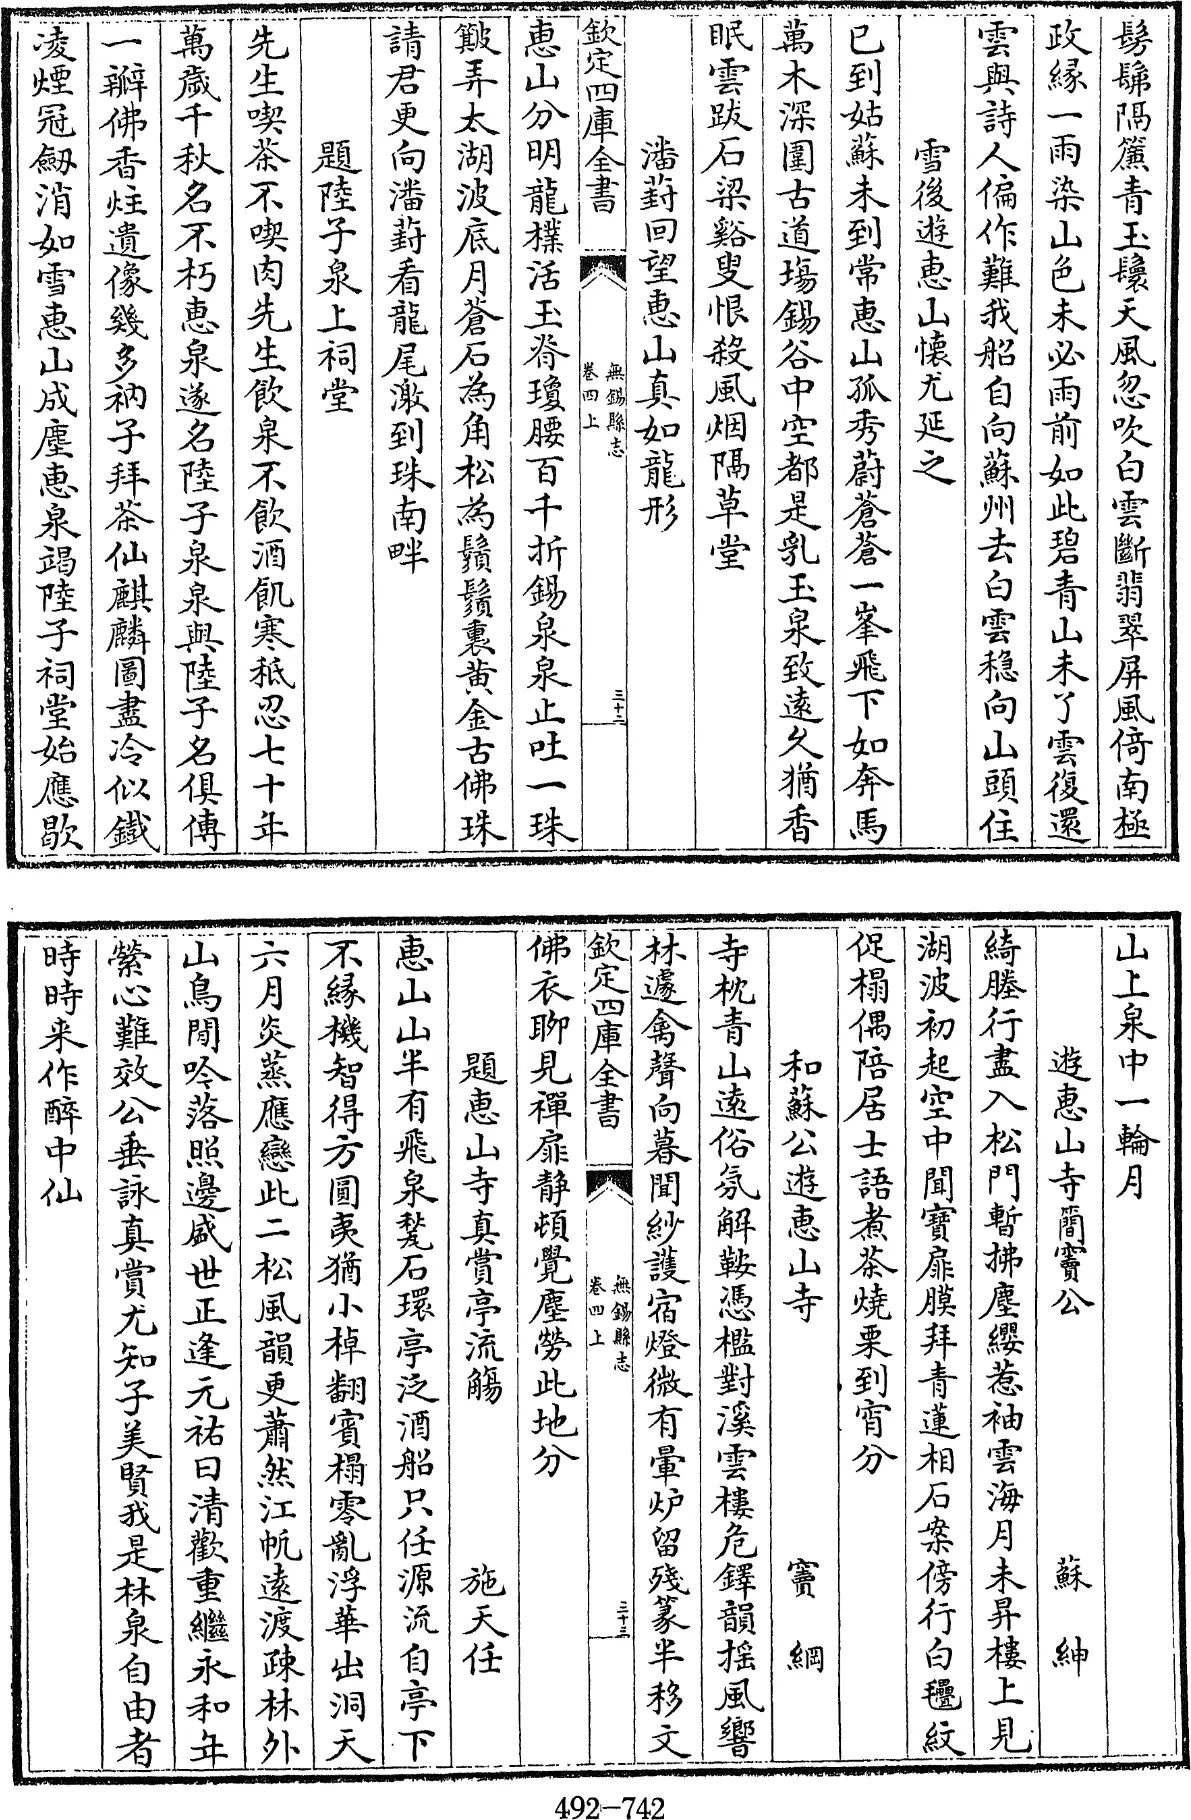 髣髴隔簾青玉鬟天風忽吹白雲斷翡翠屏風倚南極
政縁一雨染山色未必雨前如此碧青山未了雲復還
雲與詩人偏作難我船自向蘇州去白雲稳向山頭住
雪後遊惠山懷尤延之
已到姑蘇未到常惠山孤秀蔚蒼蒼一峯飛下如奔馬
萬木深圍古道塲錫谷中空都是乳玉泉致遠久猶香
眠雲跋石梁谿叟恨殺風烟隔草堂
潘葑回望惠山真如龍形
欽定四庫全書
無錫縣志
卷四上
三十二
惠山分明龍樸活玉脊瓊腰百千折錫泉泉止吐一珠
簸弄太湖波底月蒼石為角松為鬚鬚裏黄金古佛珠
請君更向潘葑看龍尾漵到珠南畔
題陸子泉上祠堂
先生喫茶不喫肉先生飲泉不飲酒飢寒秪忍七十年
萬歲千秋名不朽惠泉遂名陸子泉泉與陸子名俱傳
一瓣佛香炷遺像幾多衲子拜茶仙麒麟圖畫冷似鐵
凌煙冠劒消如雪惠山成塵惠泉竭陸子祠堂始應歇
山上泉中一輪月
遊惠山寺簡寶公 蘇紳
綺塍行盡入松門暫拂塵纓惹袖雲海月未昇樓上見
湖波初起空中聞寶扉膜拜青蓮相石案傍行白㲲紋
促榻偶陪居士語煮茶燒栗到宵分
和蘇公遊惠山寺 竇綱
寺枕青山遠俗氛解鞍憑檻對溪雲樓危鐸韻揺風響
林遽禽聲向暮聞紗護宿燈微有暈炉留殘篆半移文
欽定四庫全書
無錫縣志
卷四上
三十三
佛衣聊見禪扉静頓覺塵勞此地分
題惠山寺真賞亭流觴 施天任
惠山山半有飛泉甃石環亭泛酒船只任源流自亭下
不縁機智得方圓夷猶小棹翻賓榻零亂浮華出洞天
六月炎蒸應戀此二松風韻更蕭然江帆遠渡疎林外
山鳥閒吟落照邊盛世正逢元祐日清歡重繼永和年
縈心難效公垂詠真賞尤知子美賢我是林泉自由者
時時来作醉中仙
492-742